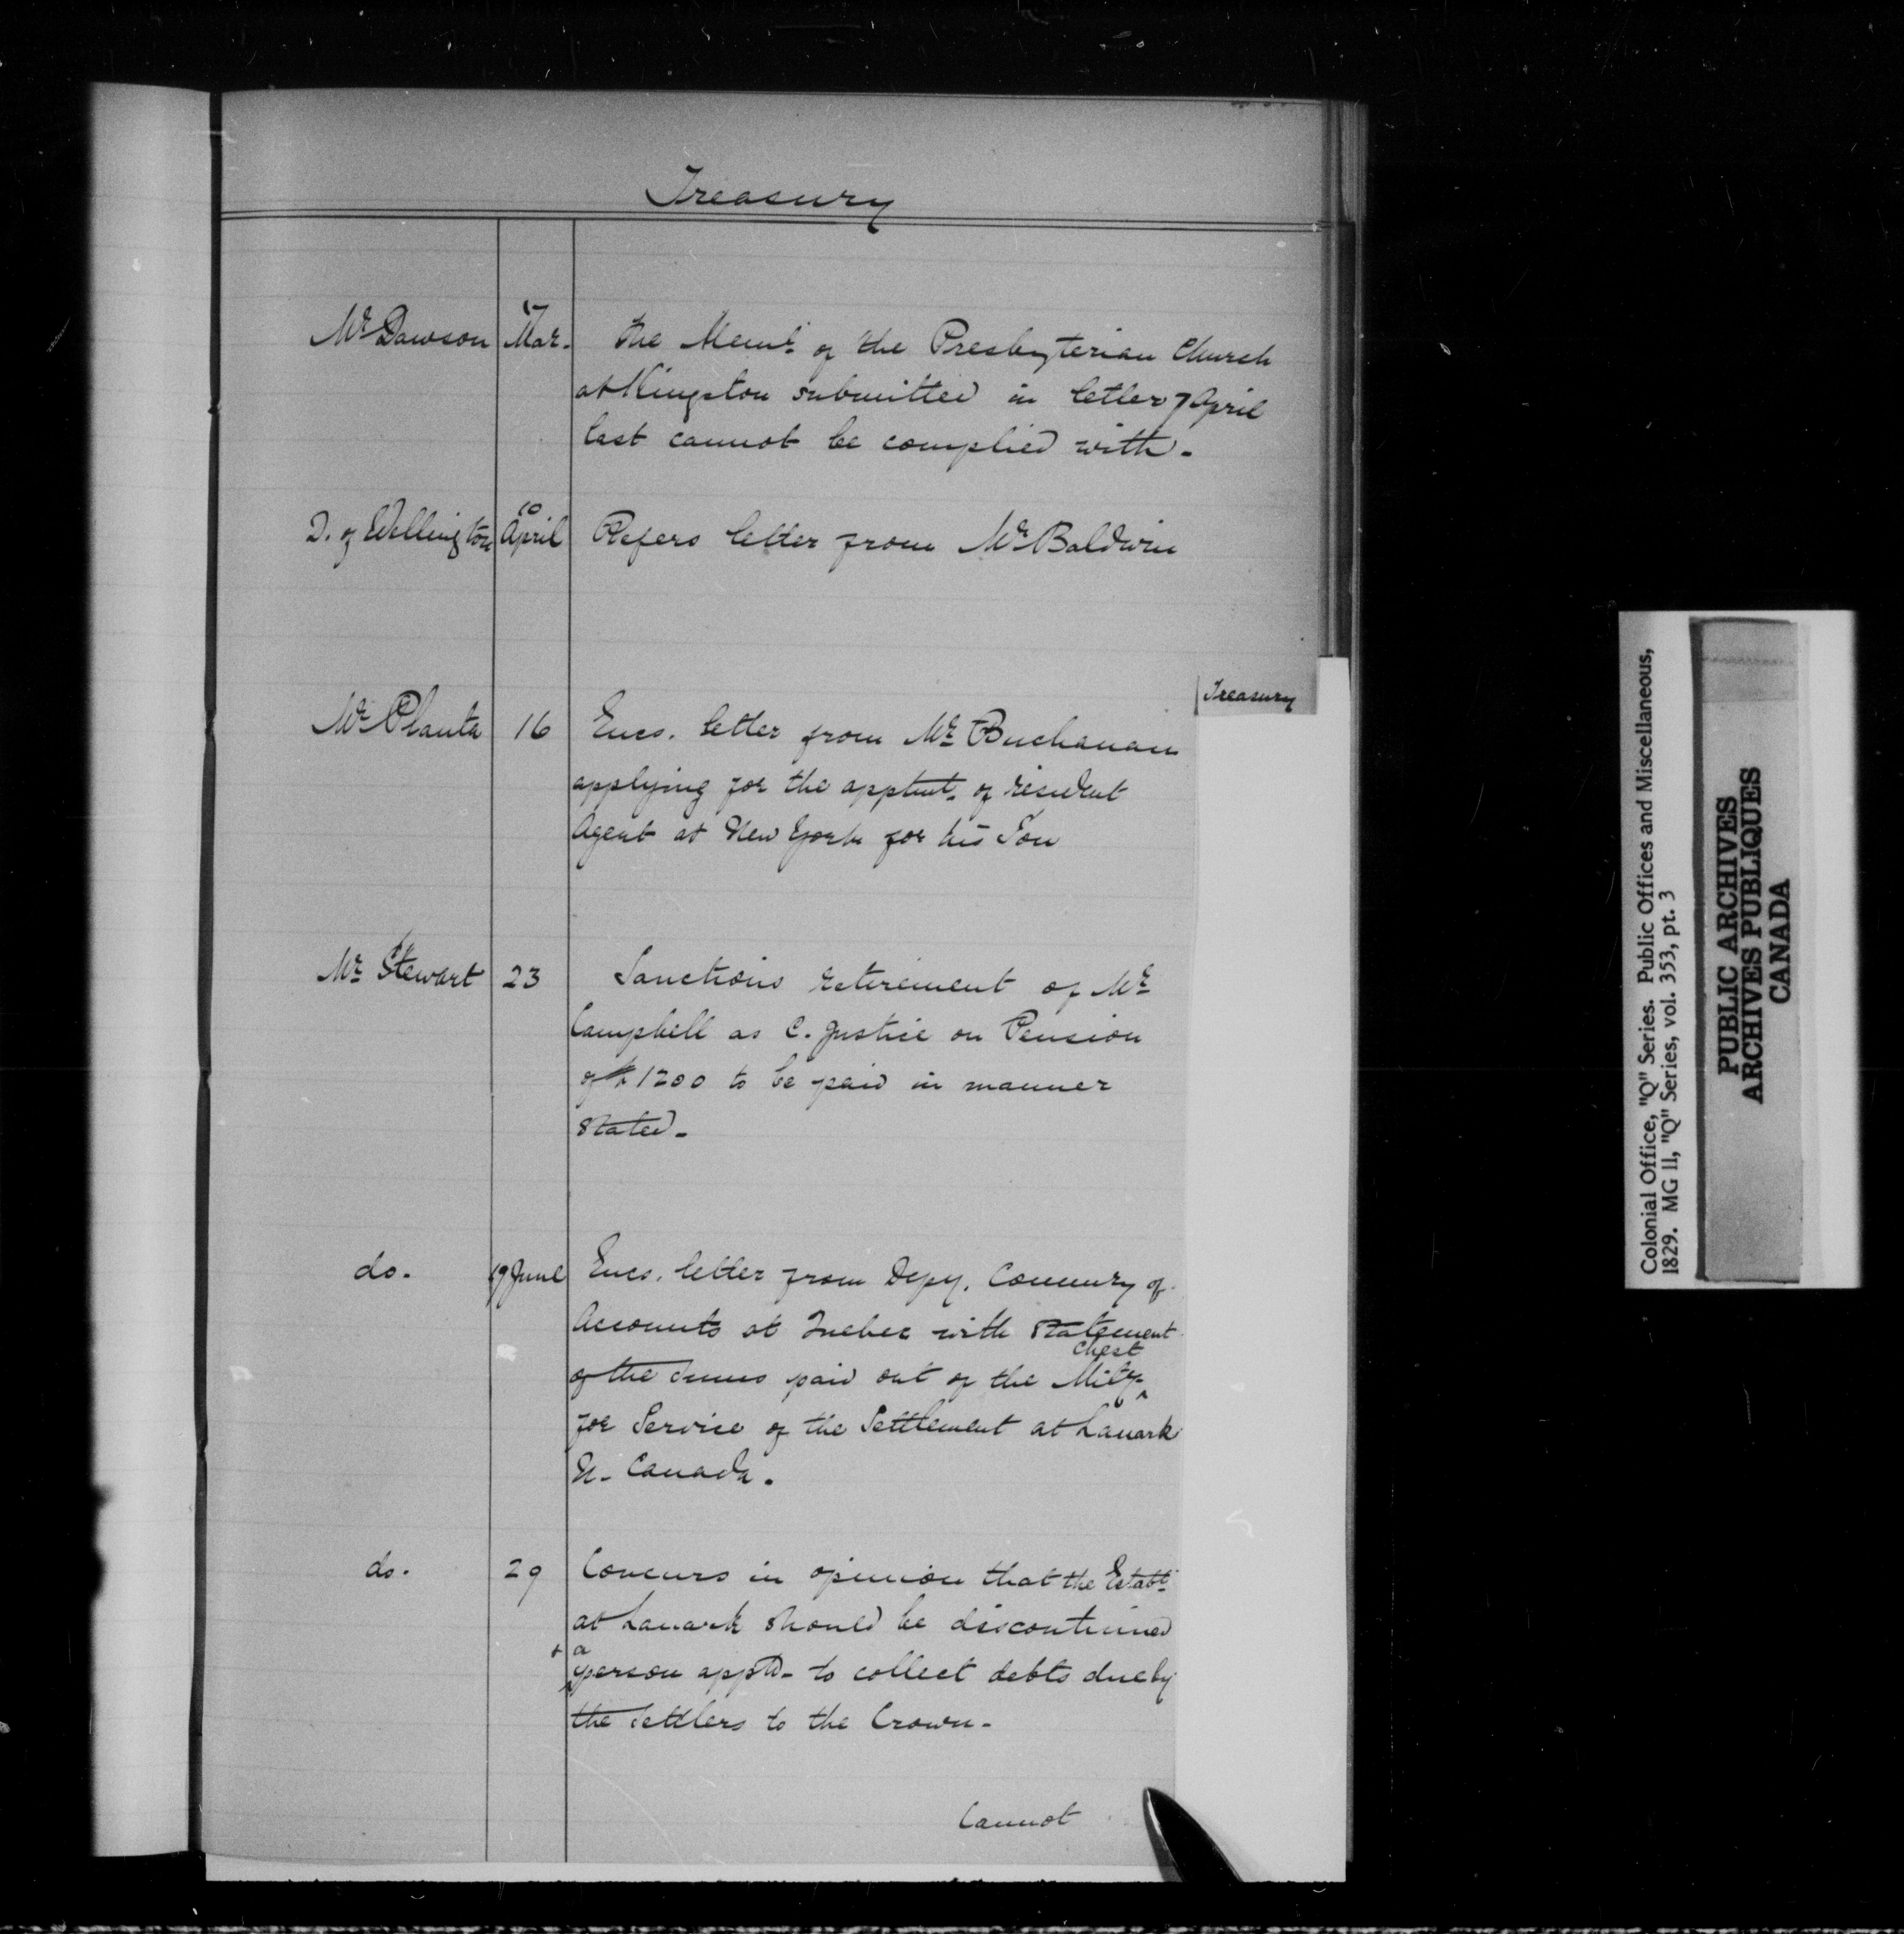 Treasury
Mr Dawson Mar. The Meml of the Presbyterian Church
at Kingston submitted in letter 7 April
last cannot be complied with.
D. of Wellington 10 April Refers letter from Mr Baldwin
Treasury
Mr Planta 16 Encs. letter from Mr Buchanan
applying for the apptmt. of resident
Agent at New York for his Son
Mr Stewart 23 Sanctions retirement of Mr
Campbell as C. Justice on Pension
of £1200 to be paid in manner
stated.
do. 19 June Encs. letter from Depy. Commry of
Accounts at Quebec with statement
of the sums paid out of the Mily chest
for Service of the Settlement at Lanark
U. Canada.
do. 29 Concurs in opinion that the Establt
at Lanark should be discontinued
+ a person apptd. to collect debts due by
the settlers to the Crown.
Cannot
Colonial Office, "Q" Series. Public Offices and Miscellaneous,
1829. MG 11, "Q" Series, vol. 353, pt. 3
PUBLIC ARCHIVES
ARCHIVES PUBLIQUES
CANADA